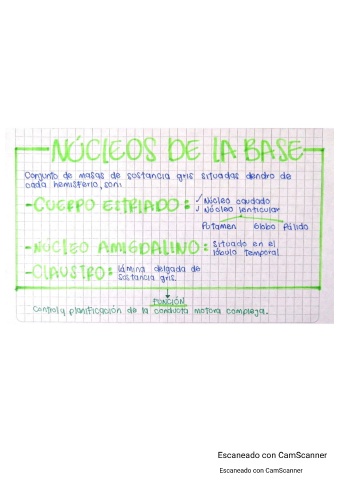 NÚCLEOS DE LA BASE
Conjunto de masas de sostancia gris situadas dendro de
cada hemisferio, son:
-CUERPO ESTRIADO: ✓ Núcleo caudado
✓ Núcleo lenticular
Putamen Globo Pálido
-NÚCLEO AMIGDALINO: Situado en el
lóbulo Temporal
-CLAUSTRO: lámina delgada de
Sostancia gris.
FUNCIÓN
Control y planificación de la conducta motora compleja.
Escaneado con CamScanner
Escaneado con CamScanner